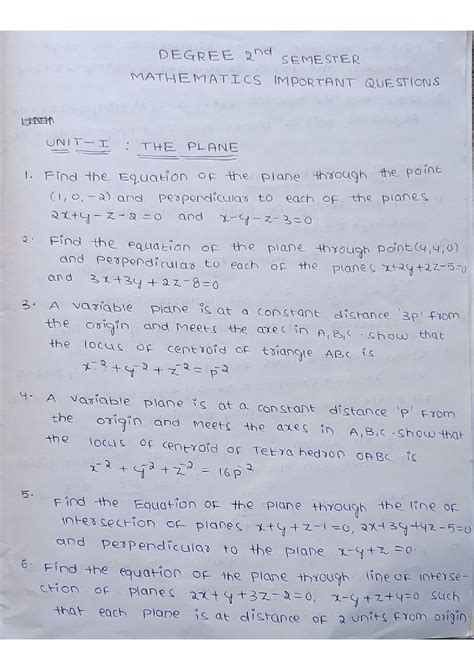 DEGREE 2nd SEMESTER
MATHEMATICS IMPORTANT QUESTIONS
UNIT-I : THE PLANE
1. Find the Equation of the plane through the point
(1, 0, -2) and perpendicular to each of the planes
2x+y-z-2=0 and x-y-z-3=0.
2. Find the equation of the plane through point(4,4,0)
and perpendicular to each of the planes x+2y+2z-5=0
and 3x+3y+2z-8=0
3. A variable plane is at a constant distance '3p' from
the origin and meets the axes in A,B,C. show that
the locus of centroid of triangle ABC is
x⁻²+y⁻²+z⁻²=p⁻²
4. A variable plane is at a constant distance 'p' from
the origin and meets the axes in A,B,C. show that
the locus of centroid of Tetrahedron OABC is
x⁻²+y⁻²+z⁻²=16p⁻²
5. Find the Equation of the plane through the line of
intersection of planes x+y+z-1=0, 2x+3y+4z-5=0
and perpendicular to the plane x-y+z=0.
6. Find the equation of the plane through line of interse-
ction of planes 2x+y+3z-2=0, x-y+z+4=0 such
that each plane is at distance of 2 units from origin